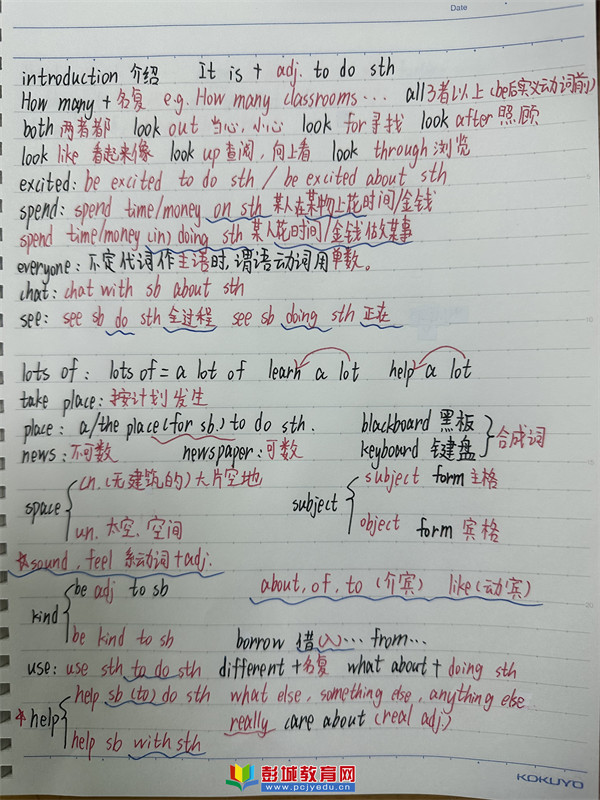 Date
introduction 介绍 It is + adj. to do sth
How many + 名复 e.g. How many classrooms... all 3者以上(be后实义动词前)
both 两者都 look out 当心,小心 look for 寻找 look after 照顾
look like 看起来像 look up 查阅,向上看 look through 浏览
excited: be excited to do sth / be excited about sth
spend: spend time/money on sth 某人在某物上花时间/金钱
spend time/money (in) doing sth 某人花时间/金钱做某事
everyone: 不定代词作主语时,谓语动词用单数。
chat: chat with sb about sth
see: see sb do sth 全过程 see sb doing sth 正在
lots of: lots of = a lot of learn a lot help a lot
take place: 按计划发生
place: a/the place (for sb.) to do sth. blackboard 黑板
news: 不可数 newspaper: 可数 keyboard 键盘 合成词
space cn. (无建筑的) 大片空地 subject subject form 主格
un. 太空、空间 object form 宾格
☆sound, feel 系动词+adj.
kind be adj to sb about, of, to (介宾) like (动宾)
be kind to sb borrow 借(入)... from...
use: use sth to do sth different + 名复 what about + doing sth
☆help help sb (to) do sth what else, something else, anything else
help sb with sth really care about (real adj)
彭城教育网
www.pcjyedu.cn
KOKUYO